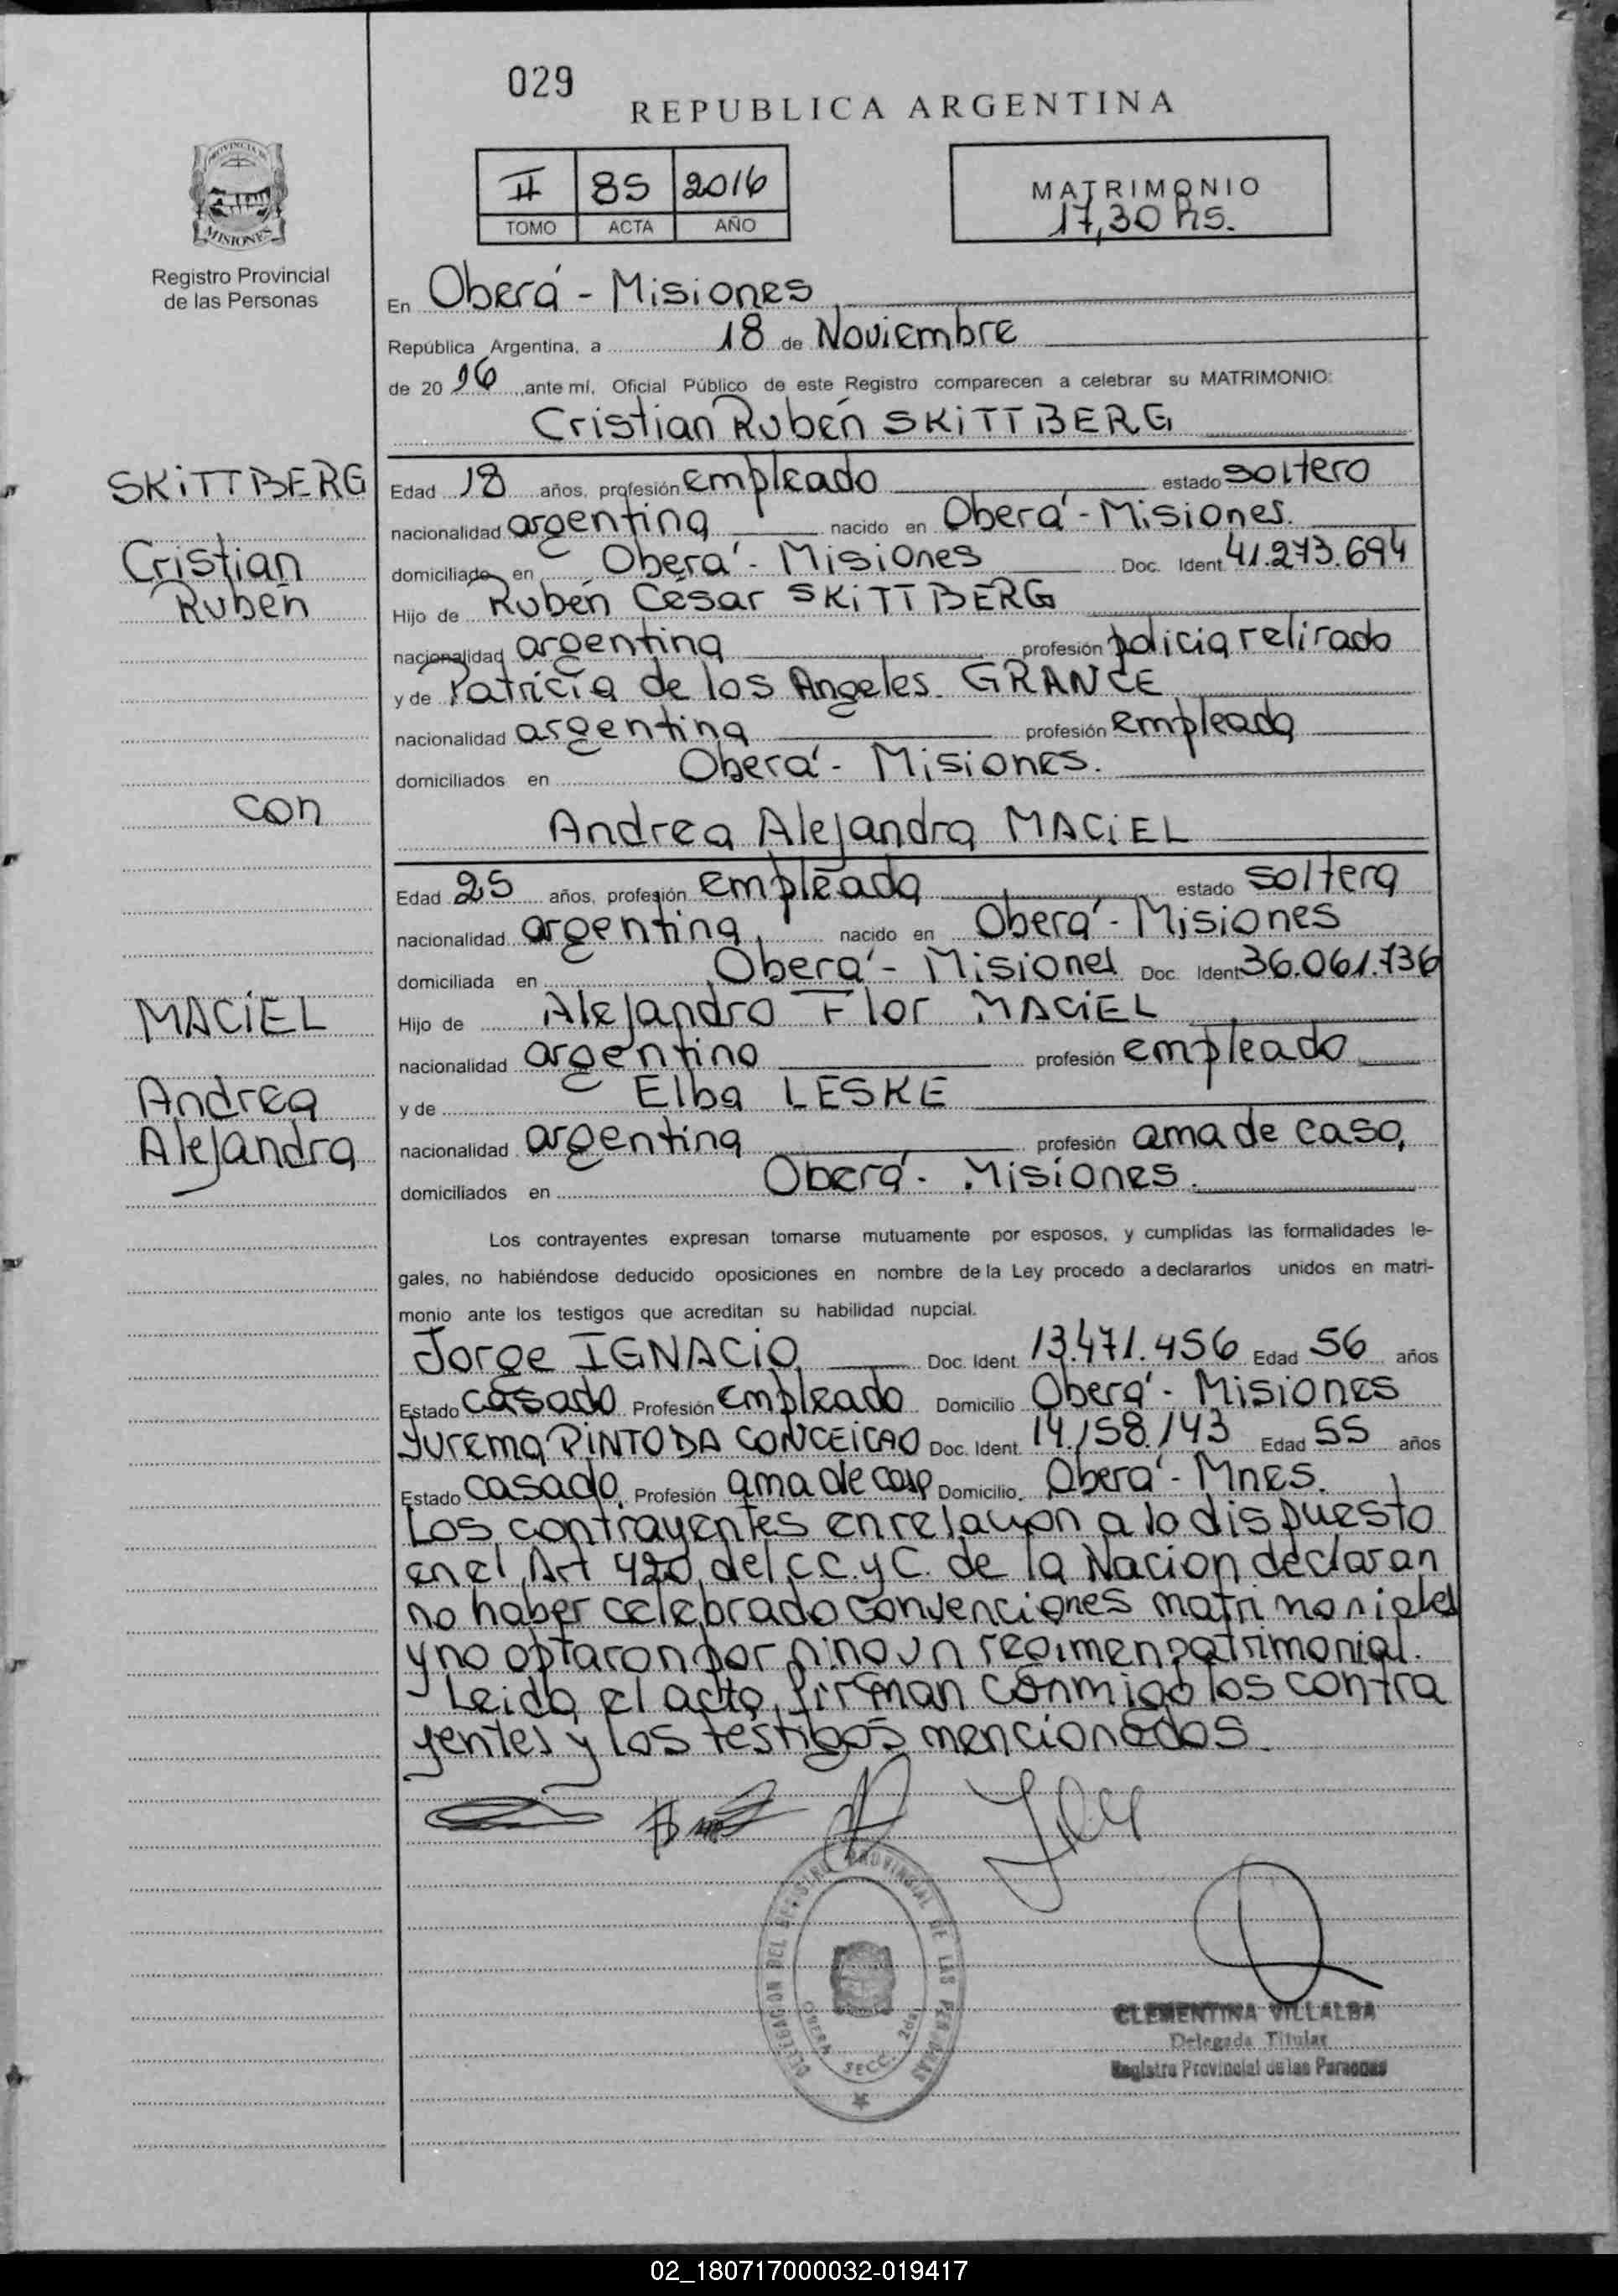 029
REPUBLICA ARGENTINA
II 85 2016
TOMO ACTA AÑO
MATRIMONIO
17,30 hs.
PROVINCIA DE
MISIONES
Registro Provincial
de las Personas
En Oberá - Misiones
República Argentina, a 18 de Noviembre
de 20 16 ante mí, Oficial Público de este Registro comparecen a celebrar su MATRIMONIO:
Cristian Rubén SKiTTBERG
SKiTTBERG
Cristian
Rubén
Edad 18 años, profesión empleado estado soltero
nacionalidad argentina nacido en Oberá - Misiones.
domiciliado en Oberá - Misiones Doc. Ident. 41.273.694
Hijo de Rubén César SKiTTBERG
nacionalidad argentina profesión policia retirado
y de Patricia de los Angeles GRANCE
nacionalidad argentina profesión empleada
domiciliados en Oberá - Misiones.
con
Andrea Alejandra MACiEL
Edad 25 años, profesión empleada estado soltera
nacionalidad argentina nacido en Oberá - Misiones
domiciliada en Oberá - Misiones Doc. Ident. 36.061.736
MACiEL
Andrea
Alejandra
Hijo de Alejandro Flor MACiEL
nacionalidad argentino profesión empleado
y de Elba LESKE
nacionalidad argentina profesión ama de casa
domiciliados en Oberá - Misiones.
Los contrayentes expresan tomarse mutuamente por esposos, y cumplidas las formalidades le-
gales, no habiéndose deducido oposiciones en nombre de la Ley procedo a declararlos unidos en matri-
monio ante los testigos que acreditan su habilidad nupcial.
Jorge IGNACiO Doc. Ident. 13.471.456 Edad 56 años
Estado casado Profesión empleado Domicilio Oberá - Misiones
Yurema PINTO DA CONCEiCAO Doc. Ident. 14.158.143 Edad 55 años
Estado casada Profesión ama de casa Domicilio Oberá - Mnes.
Los contrayentes en relacion a lo dispuesto
en el Art 420 del C.C. y C. de la Nacion declaran
no haber celebrado convenciones matrimoniales
y no optaron por ningun regimen patrimonial.
Leida el acta, firman conmigo los contra
yentes y los testigos mencionados
DELEGACION DEL REGISTRO PROVINCIAL DE LAS PERSONAS
OBERA SECC. 2da
CLEMENTINA VILLALBA
Delegada Titular
Registro Provincial de las Personas
02_180717000032-019417